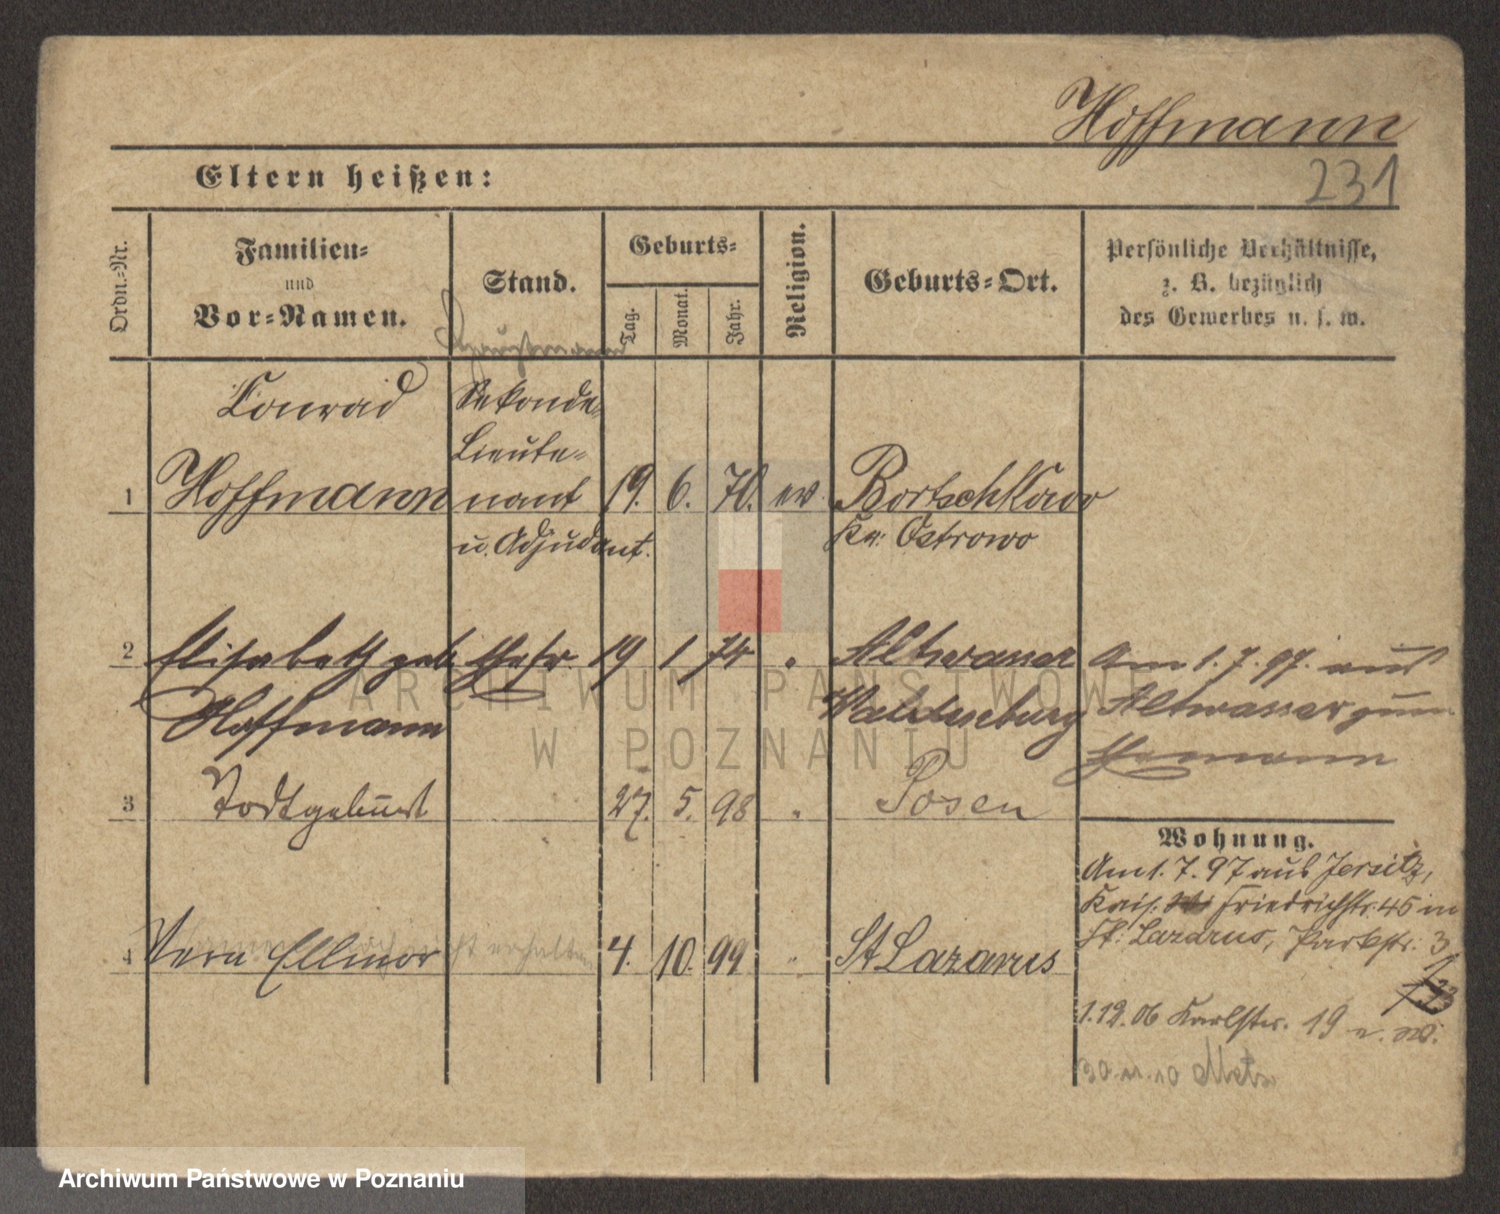 Hoffmann
231
Eltern heißen:
Ordn.-Nr.
Familien-
und
Vor-Namen.
Stand.
Geburts-
Tag.
Monat.
Jahr.
Religion.
Geburts-Ort.
Persönliche Verhältnisse,
z. B. bezüglich
des Gewerbes u. s. w.
Hauptmann
Conrad
Sekonde-
Lieute-
1 Hoffmann nant 19. 6. 70. ev. Bortschkow
u. Adjudant. Kr. Ostrowo
2 Elisabeth geb. Ehefr 19 1 74 " Altwasser Am 1.7.97. aus
Hoffmann Waldenburg Altwasser zum
Ehemann
3 Todtgeburt 27. 5. 98 " Posen
Wohnung.
Am 1.7.97 aus Jersitz,
Kais. Friedrichstr. 45 in
St. Lazarus, Parkstr. 3
4 Vera Ellinor 4. 10. 99 " St Lazarus
1.12.06 Karlstr. 19
30.11.10 Metz
ARCHIWUM PAŃSTWOWE
W POZNANIU
Archiwum Państwowe w Poznaniu